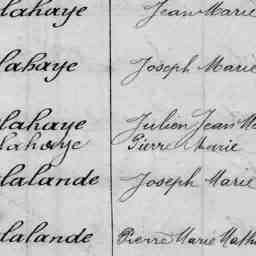 lahaye Jean Marie
lahaye Joseph Marie
lahaye Julien Jean M
lahaye Pierre Marie
lalande Joseph Marie
lalande Pierre Marie Math